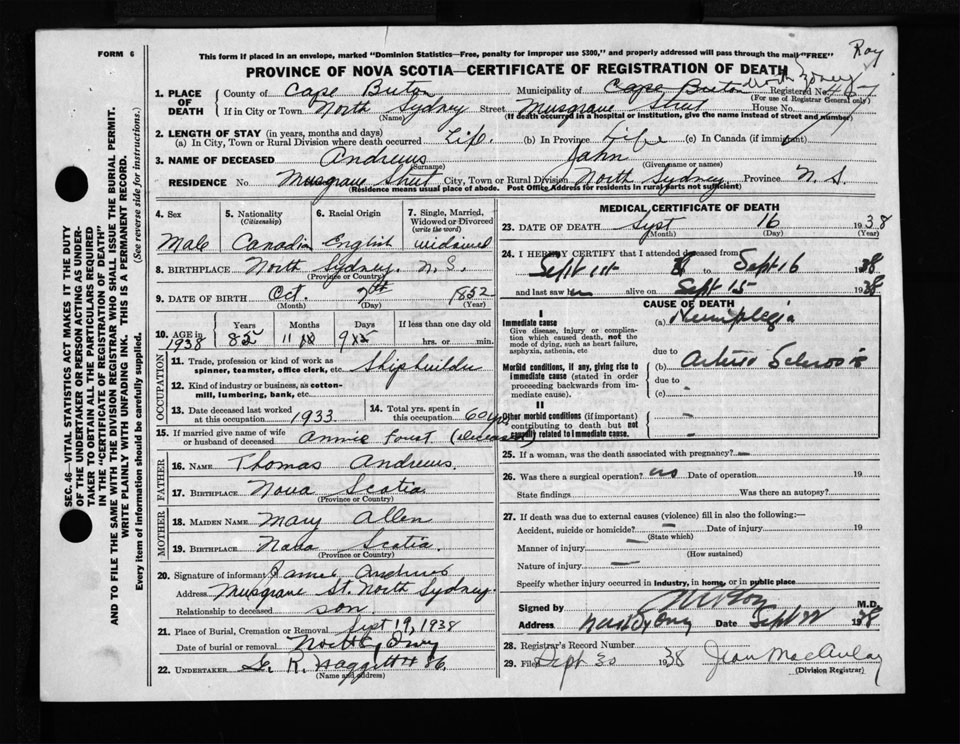 FORM 6
This form if placed in an envelope, marked "Dominion Statistics—Free, penalty for improper use $300," and properly addressed will pass through the mail "FREE"
Roy
PROVINCE OF NOVA SCOTIA—CERTIFICATE OF REGISTRATION OF DEATH
North Sydney
1. PLACE OF DEATH
County of Cape Breton Municipality of Cape Breton Registered No.
(For use of Registrar General only)
If in City or Town North Sydney Street Musgrave Street House No.
(Name) (If death occurred in a hospital or institution, give the name instead of street and number)
2. LENGTH OF STAY (in years, months and days)
(a) In City, Town or Rural Division where death occurred Life. (b) In Province Life (c) In Canada (if immigrant)
3. NAME OF DECEASED Andrews John
(Surname) (Given name or names)
RESIDENCE No. Musgrave Street City, Town or Rural Division North Sydney Province N. S.
(Residence means usual place of abode. Post Office Address for residents in rural parts not sufficient)
4. Sex 5. Nationality (Citizenship) 6. Racial Origin 7. Single, Married, Widowed or Divorced (write the word)
Male Canadian English widowed
8. BIRTHPLACE North Sydney. N. S.
(Province or Country)
9. DATE OF BIRTH Oct. 7th 1852
(Month) (Day) (Year)
10. AGE in 1938 Years Months Days If less than one day old
85 11 9 hrs. or min.
OCCUPATION
11. Trade, profession or kind of work as spinner, teamster, office clerk, etc. Shipbuilder
12. Kind of industry or business, as cotton-mill, lumbering, bank, etc.
13. Date deceased last worked at this occupation 1933 14. Total yrs. spent in this occupation 60 yrs
15. If married give name of wife or husband of deceased Annie Foust (deceased)
FATHER
16. NAME Thomas Andrews.
17. BIRTHPLACE Nova Scotia
(Province or Country)
MOTHER
18. MAIDEN NAME Mary Allen
19. BIRTHPLACE Nova Scotia.
(Province or Country)
20. Signature of informant James Andrews
Address Musgrave St. North Sydney.
Relationship to deceased son.
21. Place of Burial, Cremation or Removal Sept 19, 1938
Date of burial or removal North Sydney
22. UNDERTAKER R. Haggett
(Name and address)
MEDICAL CERTIFICATE OF DEATH
23. DATE OF DEATH Sept 16 1938
(Month) (Day) (Year)
24. I HEREBY CERTIFY that I attended deceased from
Sept 1st 38 to Sept 16 1938
and last saw him alive on Sept 15 1938
CAUSE OF DEATH
I
Immediate cause (a) Hemiplegia
Give disease, injury or complication which caused death, not the mode of dying, such as heart failure, asphyxia, asthenia, etc
due to
Morbid conditions, if any, giving rise to immediate cause (stated in order proceeding backwards from immediate cause). (b) Arterio Sclerosis
due to
(c)
II
Other morbid conditions (if important) contributing to death but not causally related to immediate cause.
25. If a woman, was the death associated with pregnancy?
26. Was there a surgical operation? no Date of operation 19
State findings Was there an autopsy?
27. If death was due to external causes (violence) fill in also the following:—
Accident, suicide or homicide? Date of injury 19
(State which)
Manner of injury
(How sustained)
Nature of injury
Specify whether injury occurred in industry, in home, or in public place
Signed by M.D.
Address North Sydney Date Sept 22 1938
28. Registrar's Record Number
29. Filed Sept 30 1938 Jean MacAulay
(Division Registrar)
SEC. 46—VITAL STATISTICS ACT MAKES IT THE DUTY
OF THE UNDERTAKER OR PERSON ACTING AS UNDER-
TAKER TO OBTAIN ALL THE PARTICULARS REQUIRED
IN THE "CERTIFICATE OF REGISTRATION OF DEATH"
AND TO FILE THE SAME WITH THE DIVISION REGISTRAR WHO SHALL ISSUE THE BURIAL PERMIT.
WRITE PLAINLY WITH UNFADING INK. THIS IS A PERMANENT RECORD.
Every item of information should be carefully supplied. (See reverse side for instructions.)